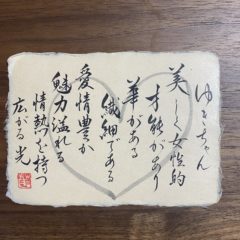 ゆきちゃん
美しく女性的
才能があり
華がある
繊細である
愛情豊か
魅力溢れる
情熱を持つ
広がる光